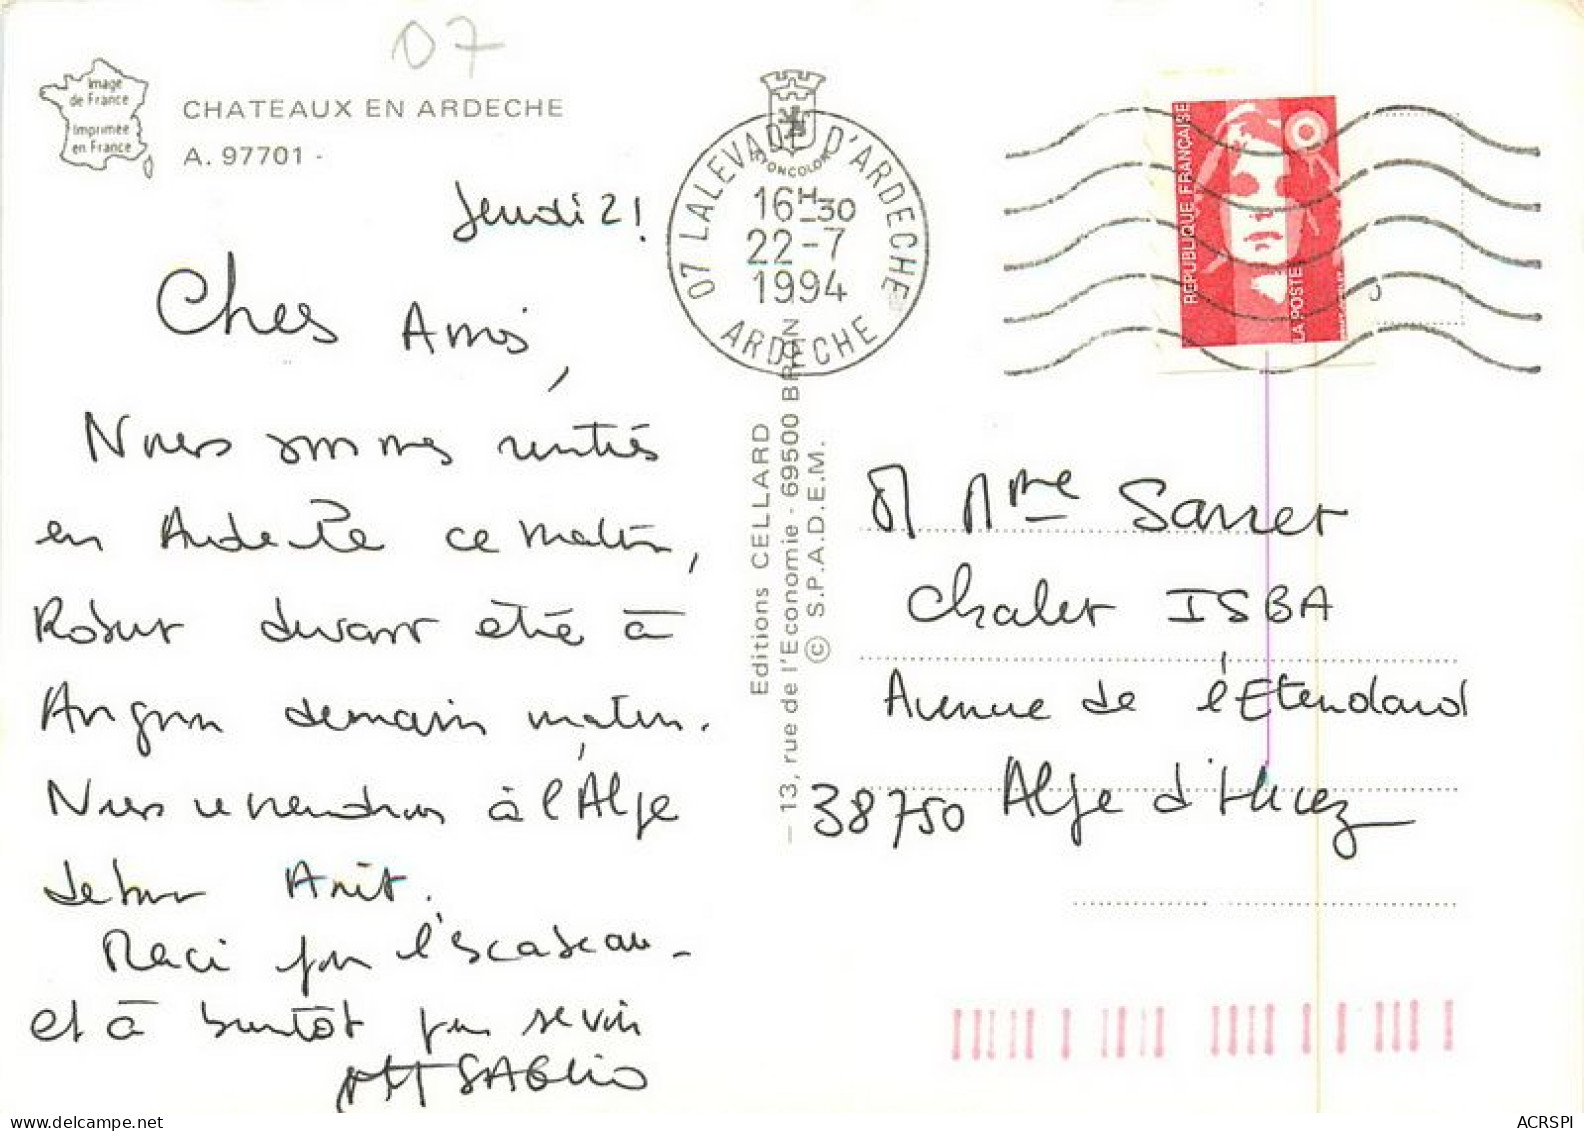 07
Image
de France
Imprimée
en France
CHATEAUX EN ARDECHE
A. 97701 -
Jeudi 21
Chers Amis,
Nous sommes rentrés
en Ardèche ce matin,
Robert devant être à
Avignon demain matin.
Nous reviendrons à l'Alpe
début Août.
Merci pour l'escabeau -
et à bientôt pour se voir
SAGLIO
07 LALEVADE D'ARDECHE
16H30
22-7
1994
ARDECHE
Editions CELLARD
— 13, rue de l'Economie - 69500 BRON
© S.P.A.D.E.M.
REPUBLIQUE FRANÇAISE
LA POSTE
M Mme Sarret
Chalet ISBA
Avenue de l'Etendard
38750 Alpe d'Huez
ACRSPI